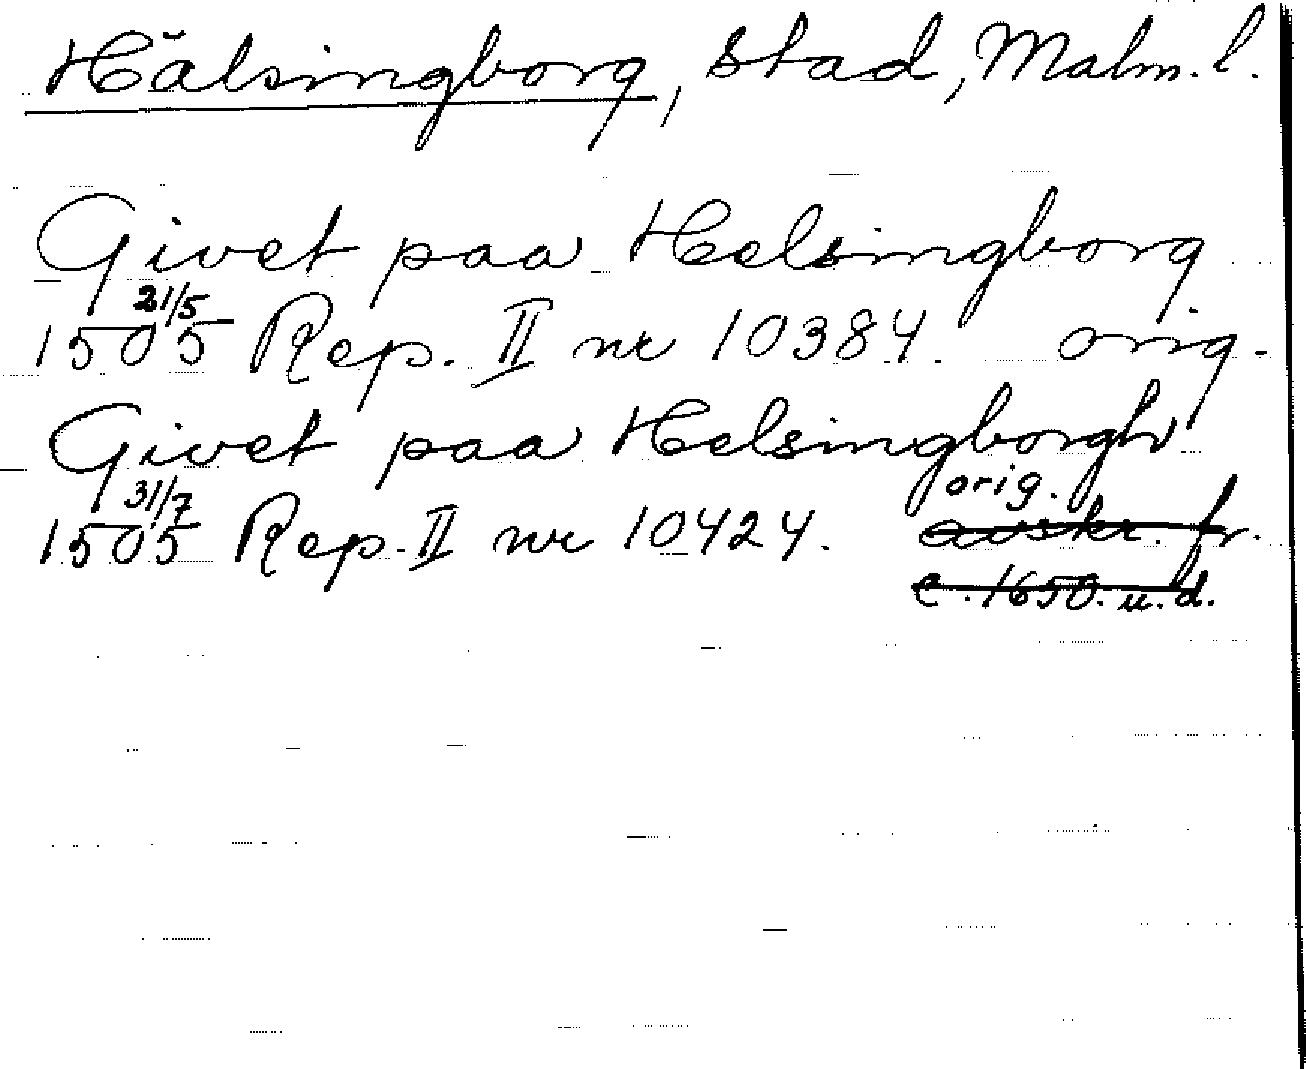 Hälsingborg, stad, Malm. l.
Givet paa Helsingborg
21/5
1505 Rep. II nr 10384. orig.
Givet paa Helsingborgh
31/7 orig.
1505 Rep. II nr 10424. avskr. fr.
c. 1650. u. d.